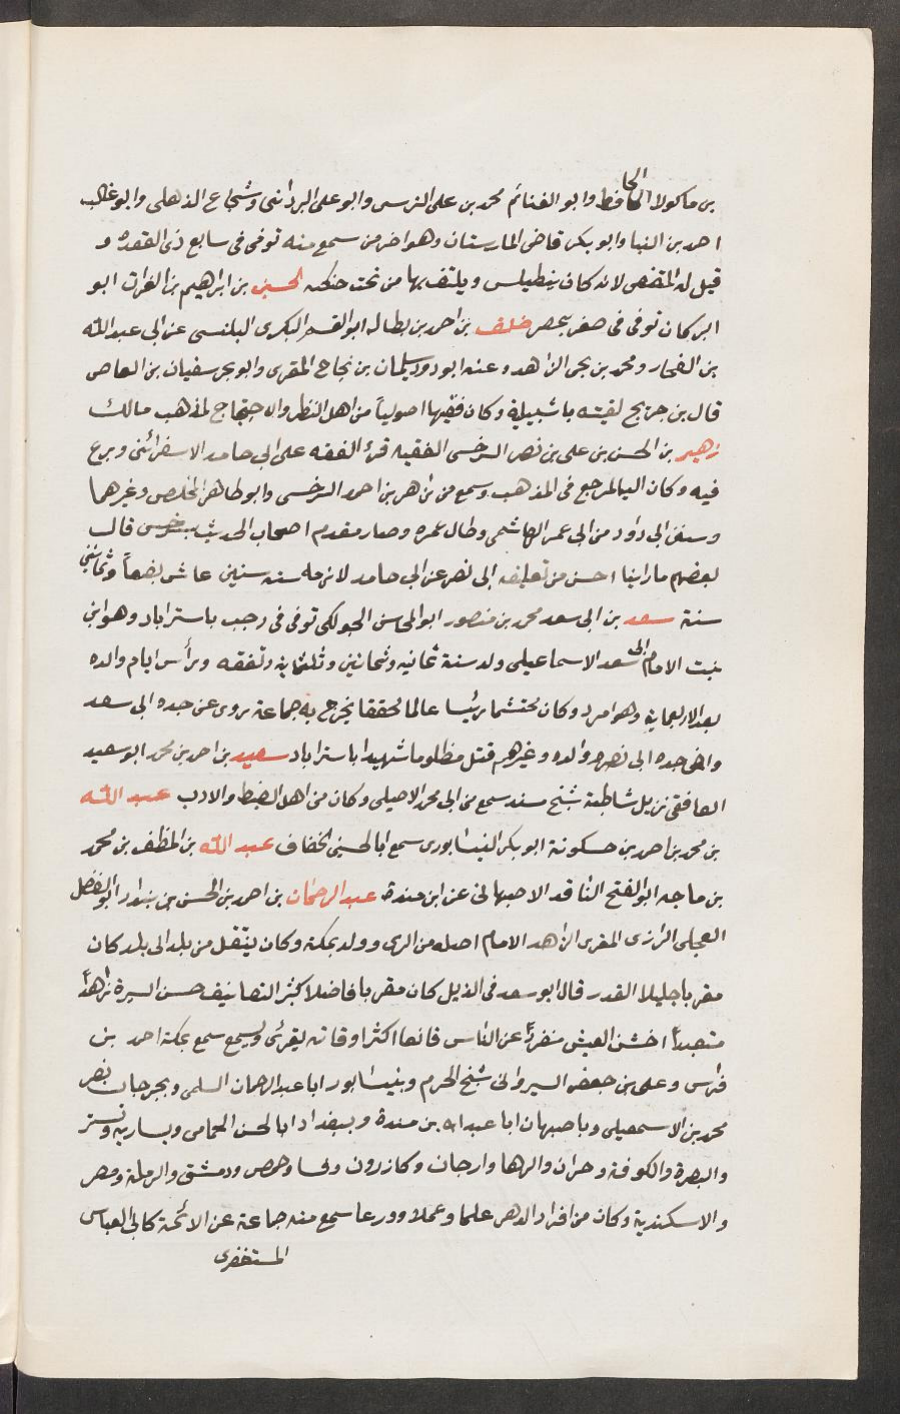 بن ماكولا الحافظ وابو الغنائم محمد بن على النرسى وابو على البردانى وشجاع الذهلى وابو غالب
احمد بن البنا وابو بكر قاضى المارستان وهو اخر من سمع منه توفى فى سابع ذى القعده و
قيل له المقنعى لانه كان يتطيلس ويلتف بها من تحت حنكه الحسين بن ابراهيم بن الفرات ابو
البركان توفى فى صفر بمصر خلف بن احمد بن بطال ابو القسم البكرى البلنسى عن ابى عبد الله
بن الفخار ومحمد بن يحى الزاهد وعنه ابو داود سليمان بن نجاح المقرى وابو بحر سفيان بن العاص
قال بن جريج لقيته باشبيلية وكان فقيها اصوليا من اهل النظر والاحتجاج لمذهب مالك
زهير بن الحسن بن على بن نصر السرخسى الفقيه قرء الفقه على ابى حامد الاسفرائنى وبرع
فيه وكان اليه المرجع فى المذهب وسمع من زاهر بن احمد السرخسى وابو طاهر المخلص وغيرهما
وسنن ابى داود من ابى عمر الهاشمى وطال عمره وصار مقدم اصحاب الحديث بسرخس قال
بعضهم ما راينا احسن من تعليقه الى نصر عن ابى حامد لازمه سته سنين عاش بضعاً وثمانين
سنة سعد بن ابى سعد محمد بن منصور ابو المحاسن الجولكى توفى فى رجب باستراباد وهو ابن
بنت الامام ابى سعد الاسماعيلى ولد سنة ثمانيه وثمانين وثلثمايه وتفقه وبرأس ايام والده
بعد الاربعماية وهو امرد وكان محتشما رئيسا عالما محققا يخرج به جماعة يروى عن جده ابى سعد
واخى جده ابى نصر ووالده وغيرهم قتل مظلوما شهيدا باستراباد سعيد بن احمد بن محمد ابو سعيد
الغافقى نزيل شاطبة شيخ مسند سمع من ابى محمد الاصيلى وكان من اهل الضبط والادب عبد الله
بن محمد بن احمد بن حسكونة ابو بكر النيسابورى سمع ابا الحسين الخفاف عبد الله بن المظفر بن محمد
بن ماجه ابو الفتح الناقد الاصبهانى عن ابن مندة عبد الرحمان بن احمد بن الحسن بن بندار ابو الفضل
العجلى الرازى المقرى الزاهد الامام اصله من الرى وولد بمكة وكان ينتقل من بلد الى بلد كان
مقربا جليلا القدر قال ابو سعد فى الذيل كان مقربا فاضلا كثير التصانيف حسن السيرة زاهداً
متعبداً اخشن العيش منفرداً عن الناس قانعا اكثر اوقاته يقرئ ويسمع سمع بمكة احمد بن
فراس وعلى بن جعفر السيروانى شيخ الحرم وبنيسابور ابا عبد الرحمان السلمى وبجرجان نصر
محمد بن الاسمعيلى وباصبهان ابا عبد الله بن مندة وببغداد ابا الحسن الحمامى وبساريه وتستر
والبصرة والكوفة وحران والرها وارجان وكازرون وفسا وحمص ودمشق والرملة ومصر
والاسكندرية وكان من افراد الدهر علما وعملا وورعا سمع منه جماعة عن الائمة كابى العباس
المستغفرى